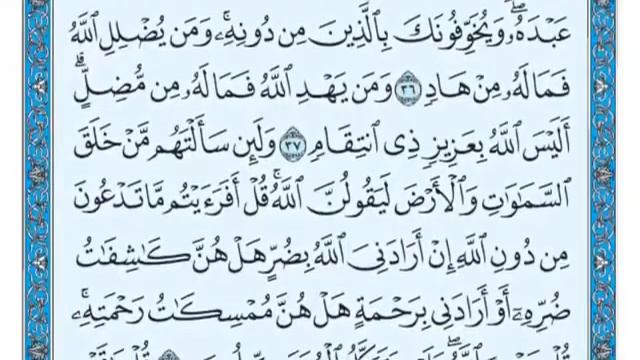 عَبْدَهُۥۖ وَيُخَوِّفُونَكَ بِٱلَّذِينَ مِن دُونِهِۦۚ وَمَن يُضْلِلِ ٱللَّهُ
فَمَا لَهُۥ مِنْ هَادٍ ٣٦ وَمَن يَهْدِ ٱللَّهُ فَمَا لَهُۥ مِن مُّضِلٍّۗ
أَلَيْسَ ٱللَّهُ بِعَزِيزٍ ذِى ٱنتِقَامٍ ٣٧ وَلَئِن سَأَلْتَهُم مَّنْ خَلَقَ
ٱلسَّمَٰوَٰتِ وَٱلْأَرْضَ لَيَقُولُنَّ ٱللَّهُۚ قُلْ أَفَرَءَيْتُم مَّا تَدْعُونَ
مِن دُونِ ٱللَّهِ إِنْ أَرَادَنِىَ ٱللَّهُ بِضُرٍّ هَلْ هُنَّ كَٰشِفَٰتُ
ضُرِّهِۦٓ أَوْ أَرَادَنِى بِرَحْمَةٍ هَلْ هُنَّ مُمْسِكَٰتُ رَحْمَتِهِۦۚ